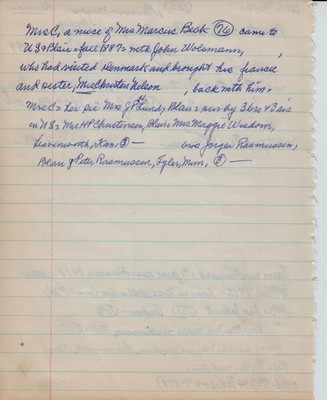 Mrs C, a niece of Mrs Marcus Beck (76) came to
US & Blair - fall 1887 with John Wolsmann,
who had visited Denmark and brought his fiancee
and sister, Mrs Christen Nelson, back with him.
Mrs C - her sis Mrs J P Lund, Blair; sur by 3 bro & 3 sis
in US: Mrs HP Christensen, Blair; Mrs Maggie Wisdom,
Leavenworth, Kan; (3) — bros Jorgen Rasmussen,
Blair & Peter Rasmussen, Tyler, Minn, (3) —